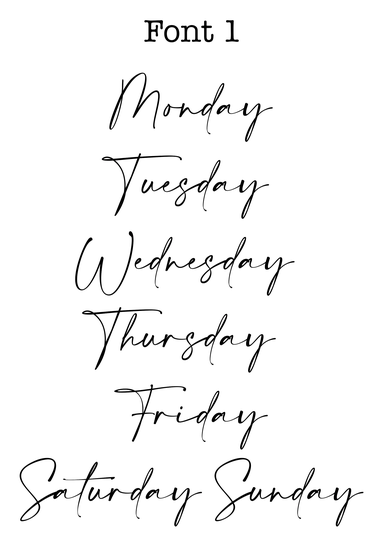 Font 1
Monday
Tuesday
Wednesday
Thursday
Friday
Saturday Sunday